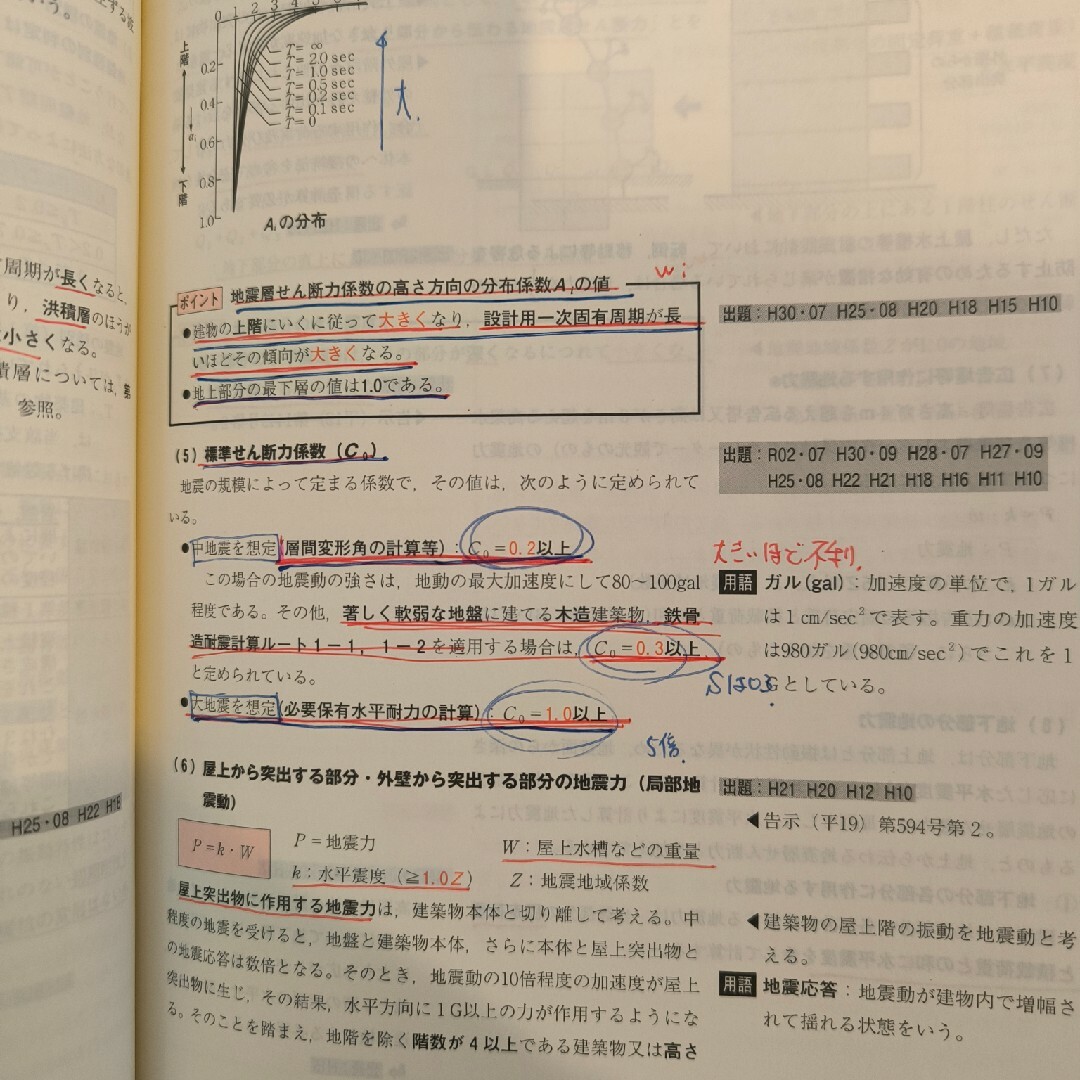 0 1 2 3 4 5 6 7
上階
0.2
0.4
0.6
0.8
1.0
下階
T=∞
T=2.0 sec
T=1.0 sec
T=0.5 sec
T=0.2 sec
T=0.1 sec
T=0
大.
Aiの分布
周期が長くなると,
り,洪積層のほうが
小さくなる。
積層については,第
参照。
H25・08 H22 H18
wi
ポイント 地震層せん断力係数の高さ方向の分布係数Aiの値
●建物の上階にいくに従って大きくなり,設計用一次固有周期が長
いほどその傾向が大きくなる。
●地上部分の最下層の値は1.0である。
出題:H30・07 H25・08 H20 H18 H15 H10
(5) 標準せん断力係数(C0)
出題:R02・07 H30・09 H28・07 H27・09
H25・08 H22 H21 H18 H16 H11 H10
地震の規模によって定まる係数で,その値は,次のように定められて
いる。
●中地震を想定(層間変形角の計算等):C0=0.2以上
大きいほど不利.
この場合の地震動の強さは,地動の最大加速度にして80~100gal
程度である。その他,著しく軟弱な地盤に建てる木造建築物,鉄骨
造耐震計算ルート1-1,1-2を適用する場合は,C0=0.3以上
と定められている。
Sは0.3
●大地震を想定(必要保有水平耐力の計算):C0=1.0以上
5倍.
用語 ガル(gal):加速度の単位で,1ガル
は1cm/sec²で表す。重力の加速度
は980ガル(980cm/sec²)でこれを1
Gとしている。
(6) 屋上から突出する部分・外壁から突出する部分の地震力(局部地
震動)
出題:H21 H20 H12 H10
◀告示(平19)第594号第2。
P=k・W
P=地震力
W:屋上水槽などの重量
k:水平震度(≧1.0Z)
Z:地震地域係数
屋上突出物に作用する地震力は,建築物本体と切り離して考える。中
程度の地震を受けると,地盤と建築物本体,さらに本体と屋上突出物と
の地震応答は数倍となる。そのとき,地震動の10倍程度の加速度が屋上
突出物に生じ,その結果,水平方向に1G以上の力が作用するようにな
る。そのことを踏まえ,地階を除く階数が4以上である建築物又は高さ
◀建築物の屋上階の振動を地震動と考
える。
用語 地震応答:地震動が建物内で増幅さ
れて揺れる状態をいう。